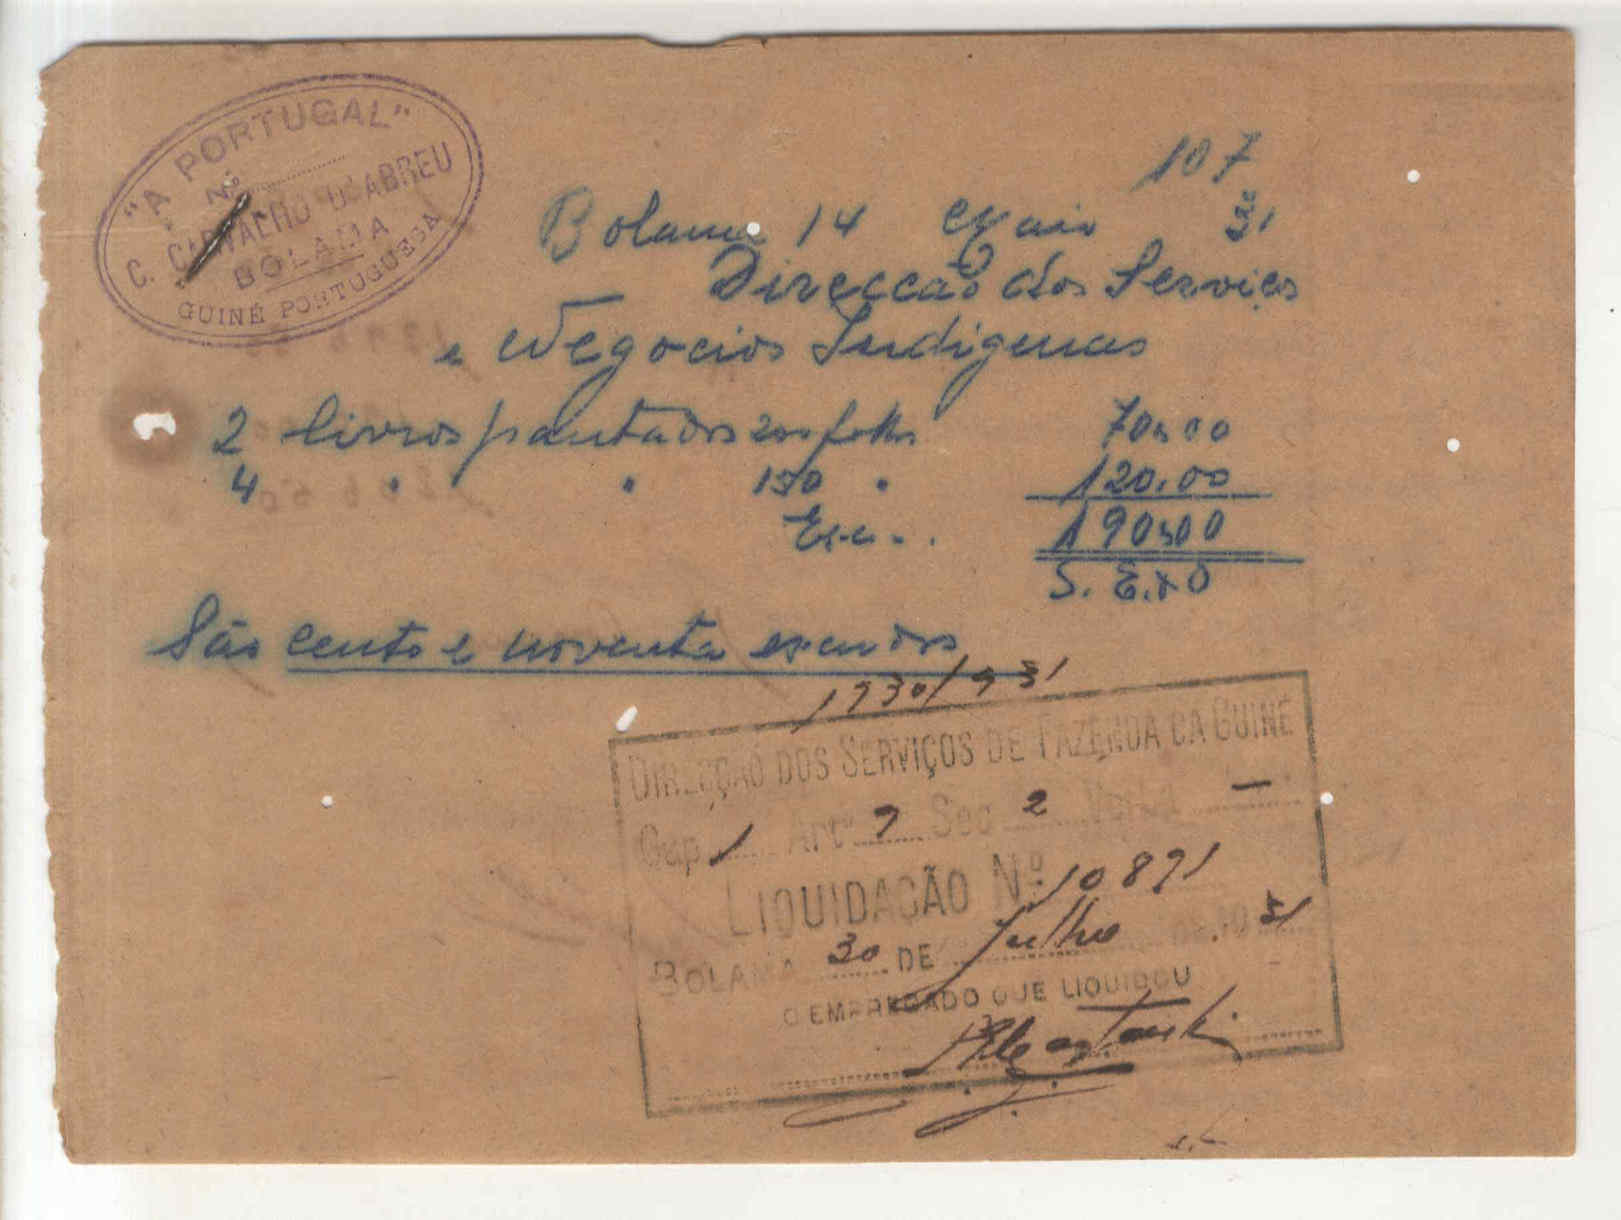 "A PORTUGAL"
Nº
C. CARVALHO D'ABREU
BOLAMA
GUINÉ PORTUGUESA
107
Bolama 14 Maio 31
Direcção dos Serviços
e Negocios Indigenas
2 livros pautados 200 folhs 70$00
4 " " 150 " 120.00
Esc. . 190$00
S. E. & O
São cento e noventa escudos
1930/931
DIRECÇÃO DOS SERVIÇOS DE FAZENDA DA GUINÉ
Cap 1 Artº 7 Sec 2 Verba —
LIQUIDAÇÃO Nº 10891
BOLAMA 30 DE Julho DE 1931
O EMPREGADO QUE LIQUIDOU